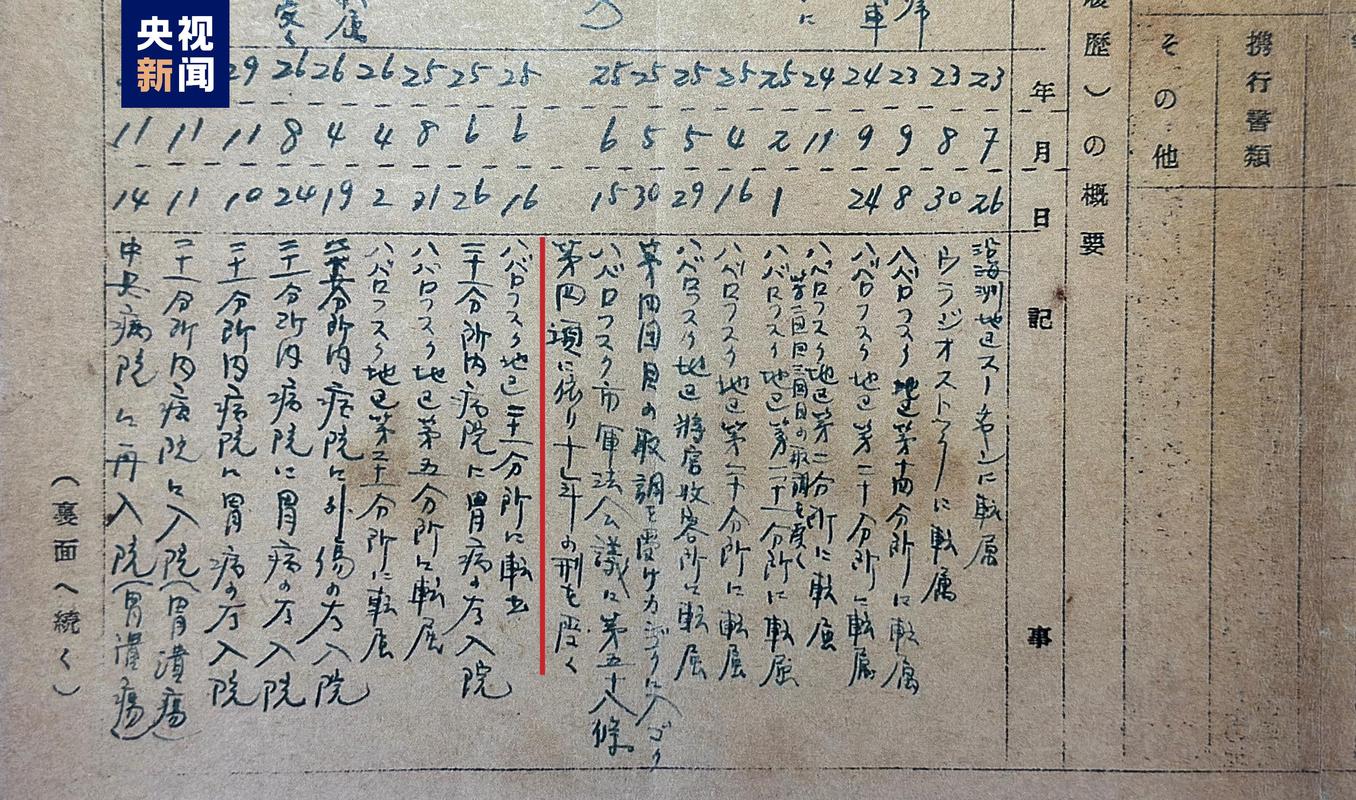 央视
新闻
携行書類
その他
歴)の概要
年
月
日
記
事
23 7 26 沿海州地区スーチャンに転属
23 8 30 ウラジオストックに転属
23 9 8 ハバロフスク地区第十四分所に転属
24 9 24 ハバロフスク地区第二十分所に転属
24 11 ハバロフスク地区第二分所に転属
第二回三回目の取調を受く
25 2 1 ハバロフスク地区第二十一分所に転属
25 4 16 ハバロフスク地区第二十分所に転属
25 5 29 ハバロフスク地区将官收容所に転属
25 5 30 第四回目の取調を受けカンゴクに入ゴク
25 6 15 ハバロフスク市軍法会議に第五十八條
第四項に依り十年の刑を受く
25 6 16 ハバロフスク地区二十一分所に転出
25 6 26 二十一分所内病院に胃病の為入院
25 8 21 ハバロフスク地区第五分所に転属
26 4 2 ハバロフスク地区第二十一分所に転属
26 4 19 分所内病院に外傷の為入院
26 8 24 二十一分所内病院に胃病の為入院
29 11 10 二十一分所内病院に胃病の為入院
11 11 二十一分所内病院に入院(胃潰瘍)
11 14 中央病院に再入院(胃潰瘍)
(裏面へ続く)